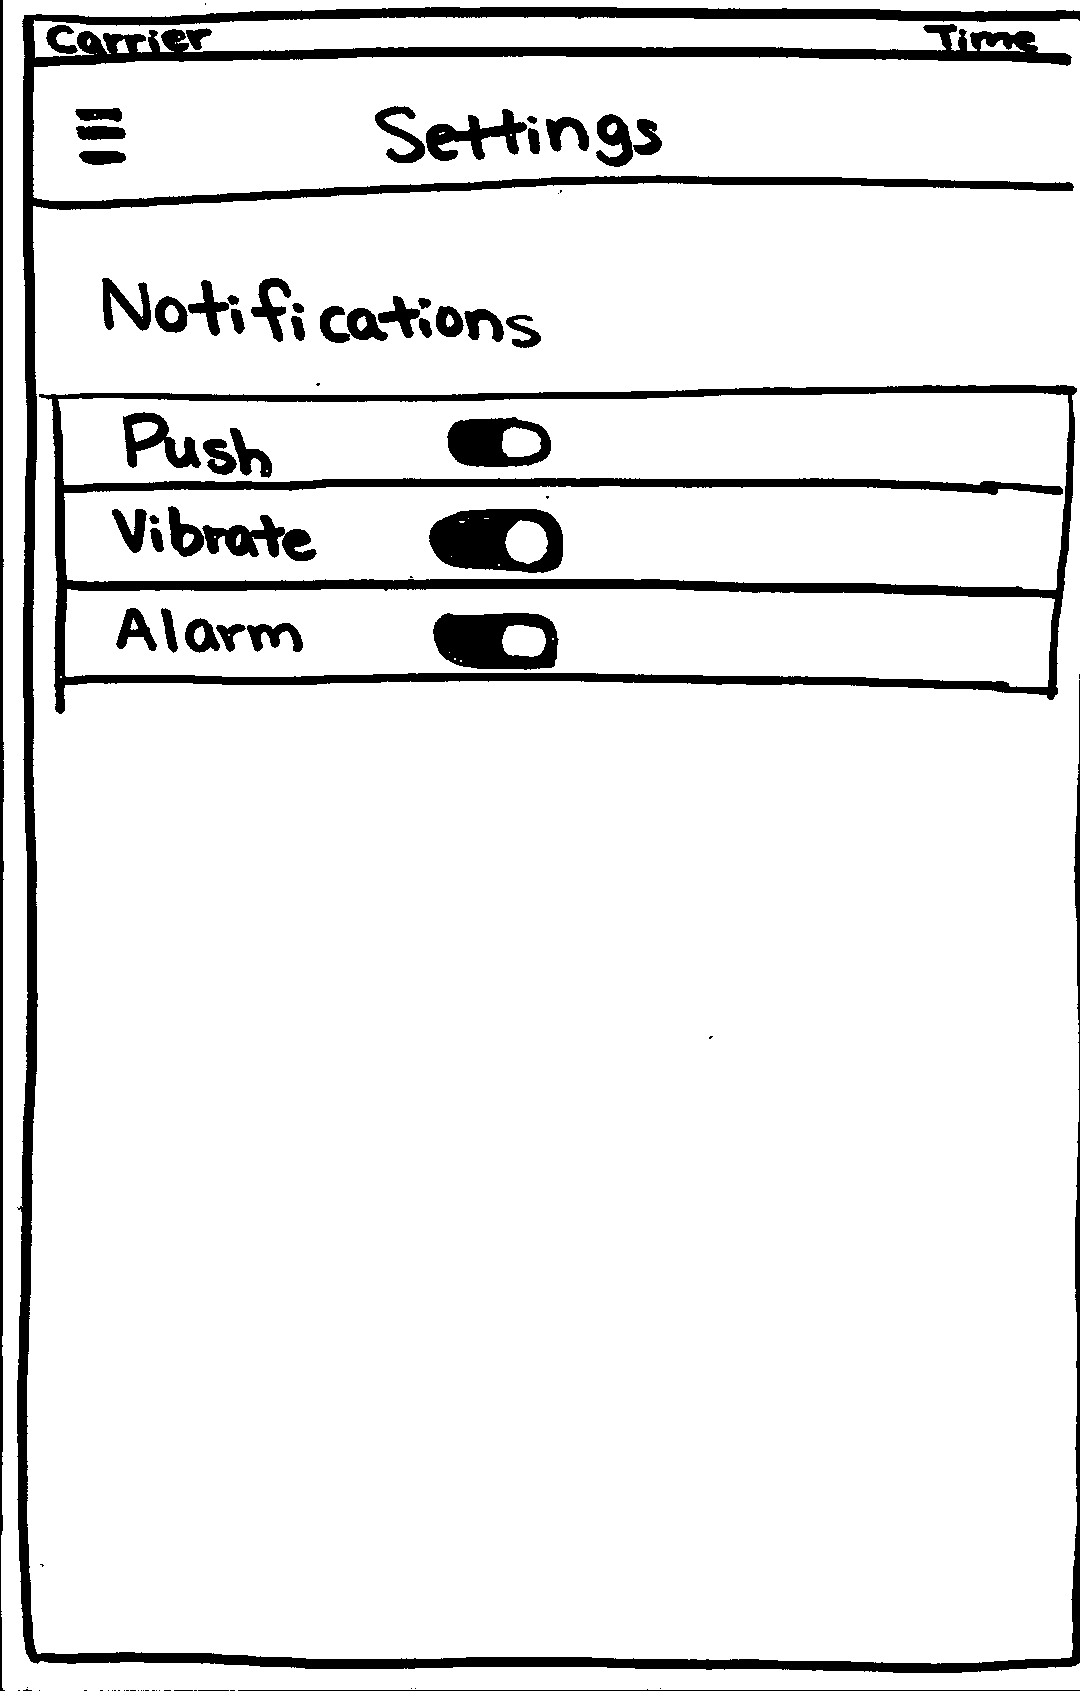 Carrier Time
Settings
Notifications
Push
Vibrate
Alarm